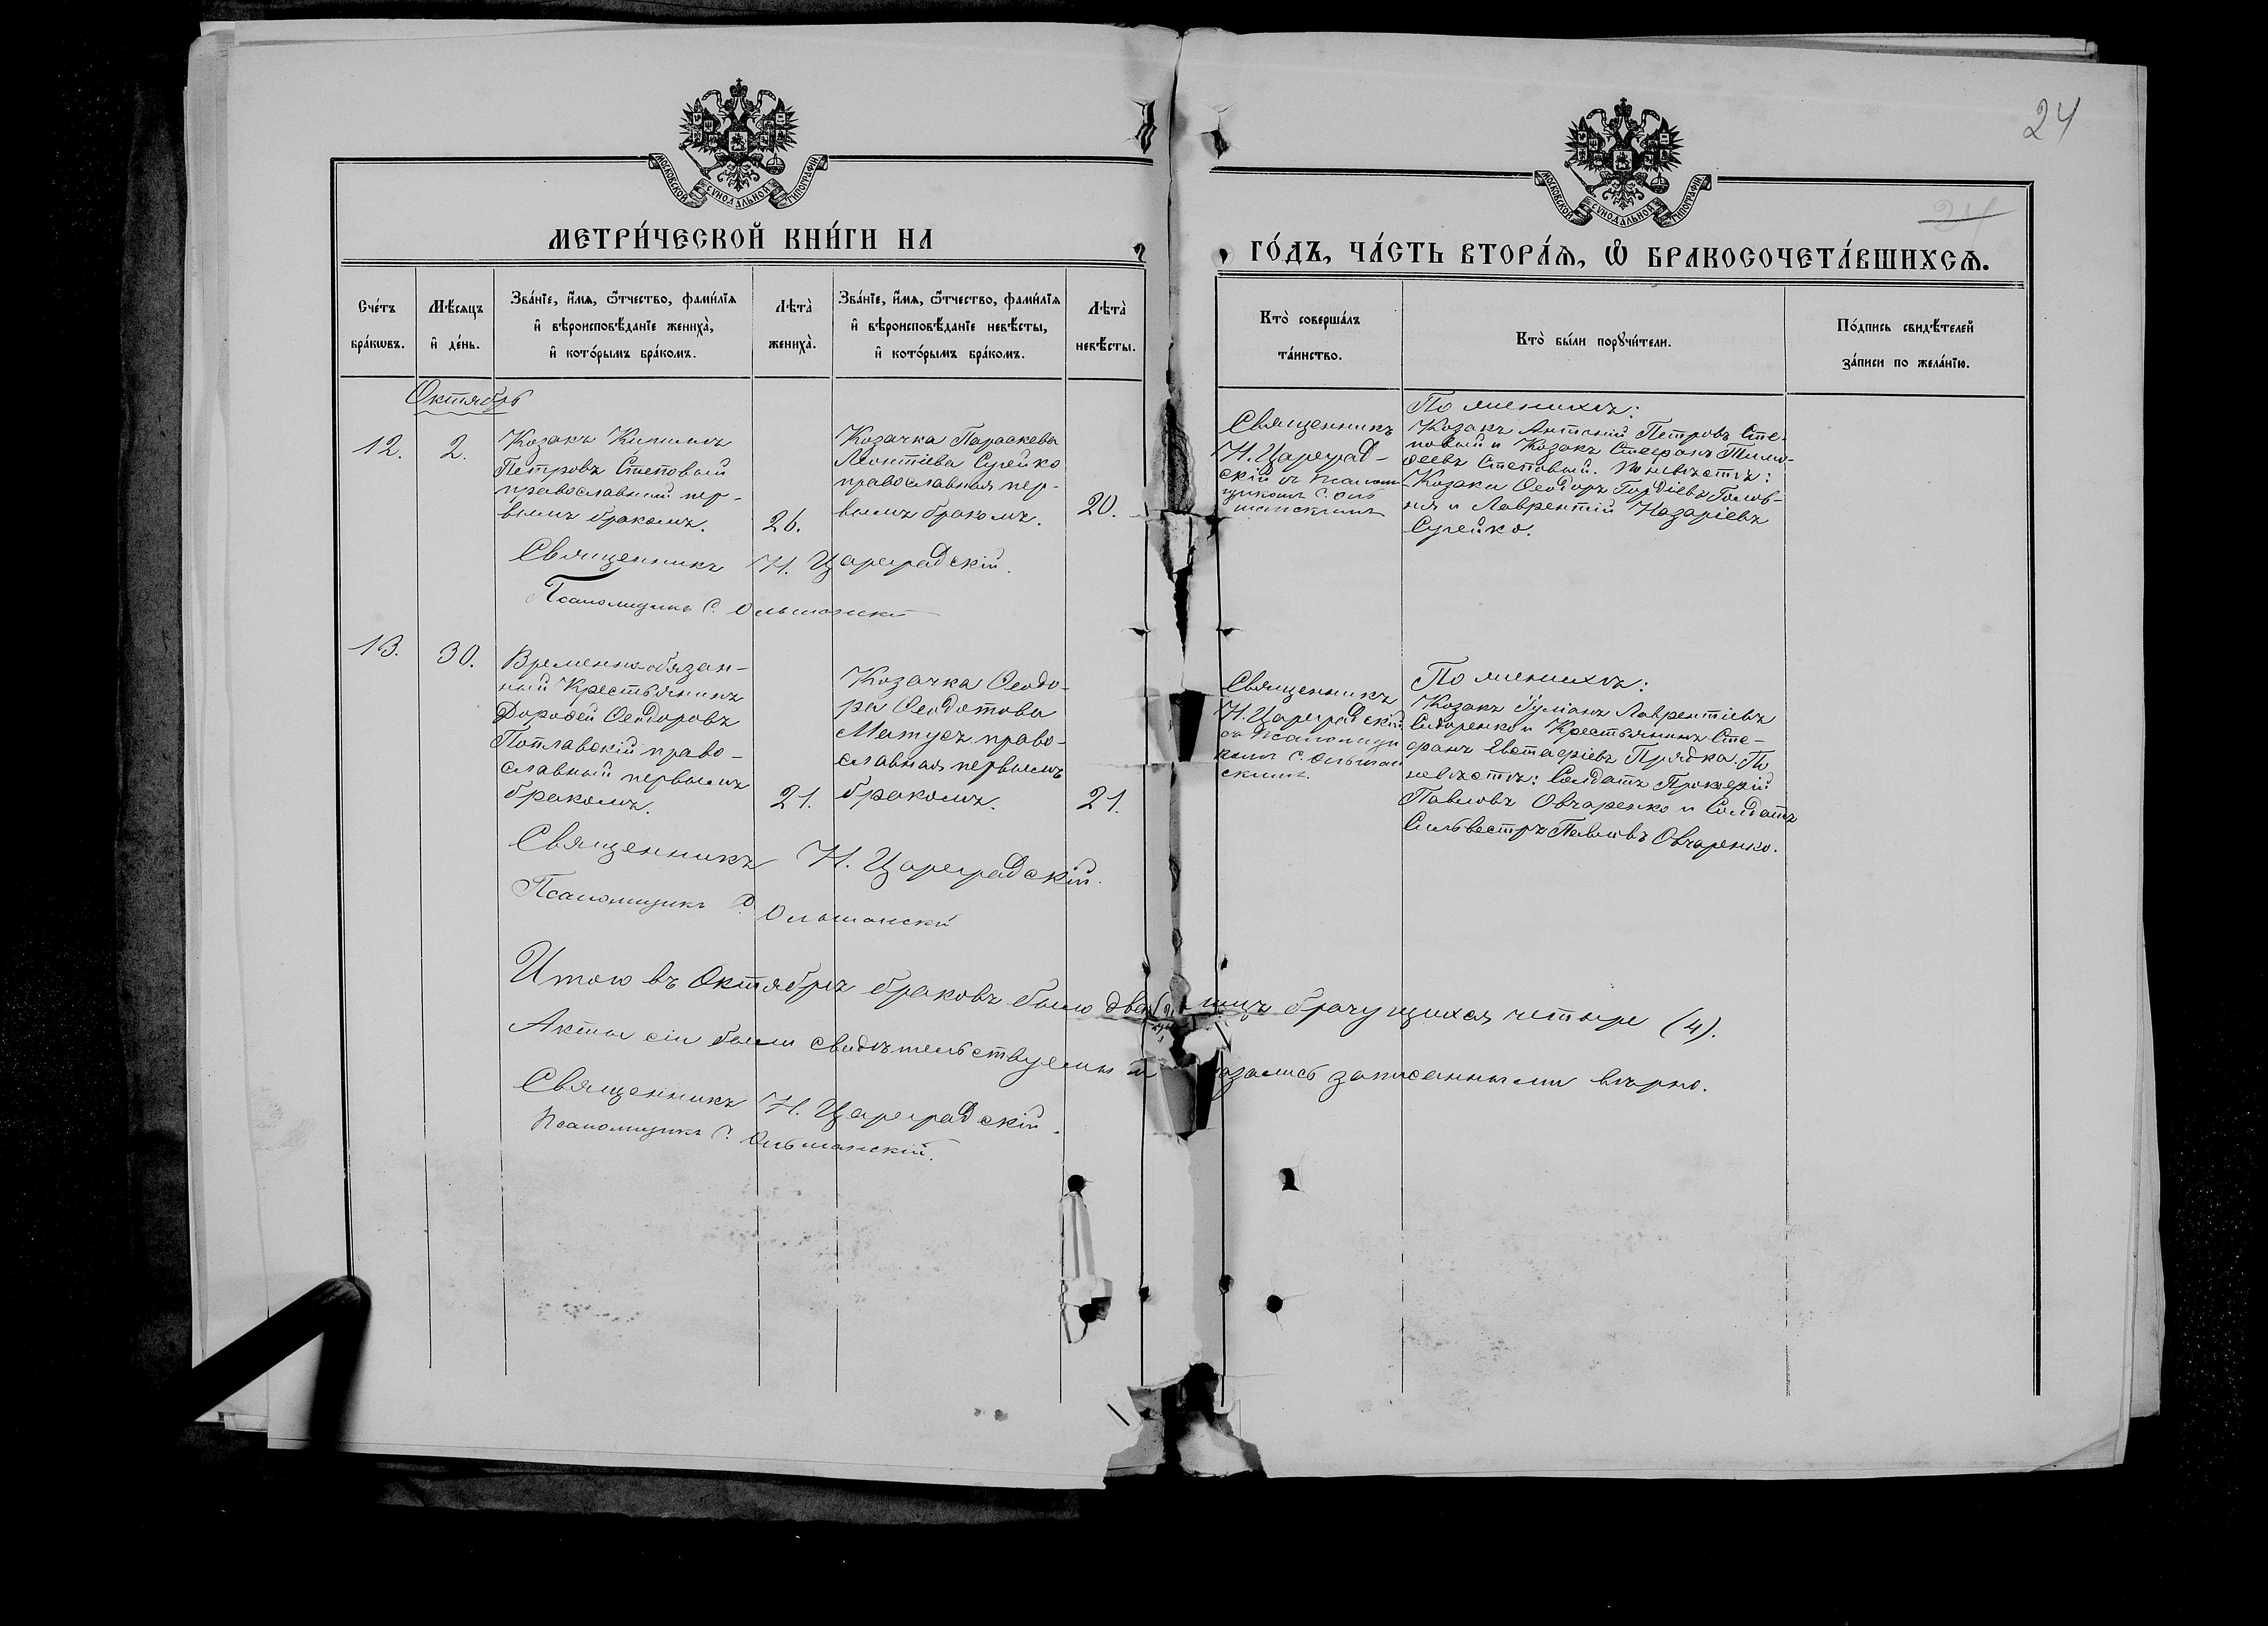 24
24
МОСКОВСКОЙ СУНОДАЛЬНОЙ ТИПОГРАФІИ
МОСКОВСКОЙ СУНОДАЛЬНОЙ ТИПОГРАФІИ
МЕТРИ́ЧЕСКОЙ КНИ́ГИ НА
ГО́ДЪ, ЧА́СТЬ ВТОРА́Ѧ, Ѽ БРАКОСОЧЕТА́ВШИХСѦ.
Сче́тъ
бра́кѡвъ.
Мѣ́сяцъ
и҆ де́нь.
Зва́нїе, и҆́мѧ, ѻ҆́тчество, фами́лїѧ
и҆ вѣроисповѣ́данїе жениха̀,
и҆ кото́рымъ бра́комъ.
Лѣта̀
жениха̀.
Зва́нїе, и҆́мѧ, ѻ҆́тчество, фами́лїѧ
и҆ вѣроисповѣ́данїе невѣ́сты,
и҆ кото́рымъ бра́комъ.
Лѣта̀
невѣ́сты.
Кто̀ соверша́лъ
та́инство.
Кто̀ бы́ли порꙋчи́тели.
По́дпись свидѣ́телей
за́писи по жела́нїю.
Октябрь
12.
2.
Козакъ
Петровъ Степовый
православный пер-
вымъ бракомъ.
26.
Козачка Параскева
Леонтіева Сулейко
православная пер-
вымъ бракомъ.
20.
Священникъ
Н. Цареград-
скій съ Псалом-
щикомъ С. Оль
шанскимъ
По женихѣ:
Козакъ Антоній Петровъ Сте-
повый и Козакъ Стефанъ Тимо-
ѳеевъ Степовый. По невѣстѣ:
Козаки Ѳеодоръ Гордіевъ Голов-
ня и Лаврентій Назаріевъ
Сулейко.
Священникъ Н. Цареградскій.
Псаломщикъ С. Ольшанскій
13.
30.
Временно-обязан-
ный Крестьянинъ
Дороѳей Ѳеодоровъ
Потлавскій право-
славный первымъ
бракомъ.
21.
Козачка Ѳеодо-
ра Ѳеодотова
Матусъ право-
славная первымъ
бракомъ.
21.
Священникъ
Н. Цареградскій
съ Псаломщи
комъ С. Ольшан
скимъ.
По женихѣ:
Козакъ Іуліанъ Лаврентіевъ
Сидоренко и Крестьянинъ Сте-
фанъ Евстафіевъ Прядка. По
невѣстѣ: Солдатъ Прокофій
Павловъ Овчаренко и Солдатъ
Сильвестръ Павловъ Овчаренко.
Священникъ Н. Цареградскій.
Псаломщикъ С. Ольшанскій
Итого въ Октябрѣ браковъ было два (2) лицъ брачущихся четыре (4).
Акты сіи были свидѣтельствуемы и оказались записанными вѣрно.
Священникъ Н. Цареградскій.
Псаломщикъ С. Ольшанскій.